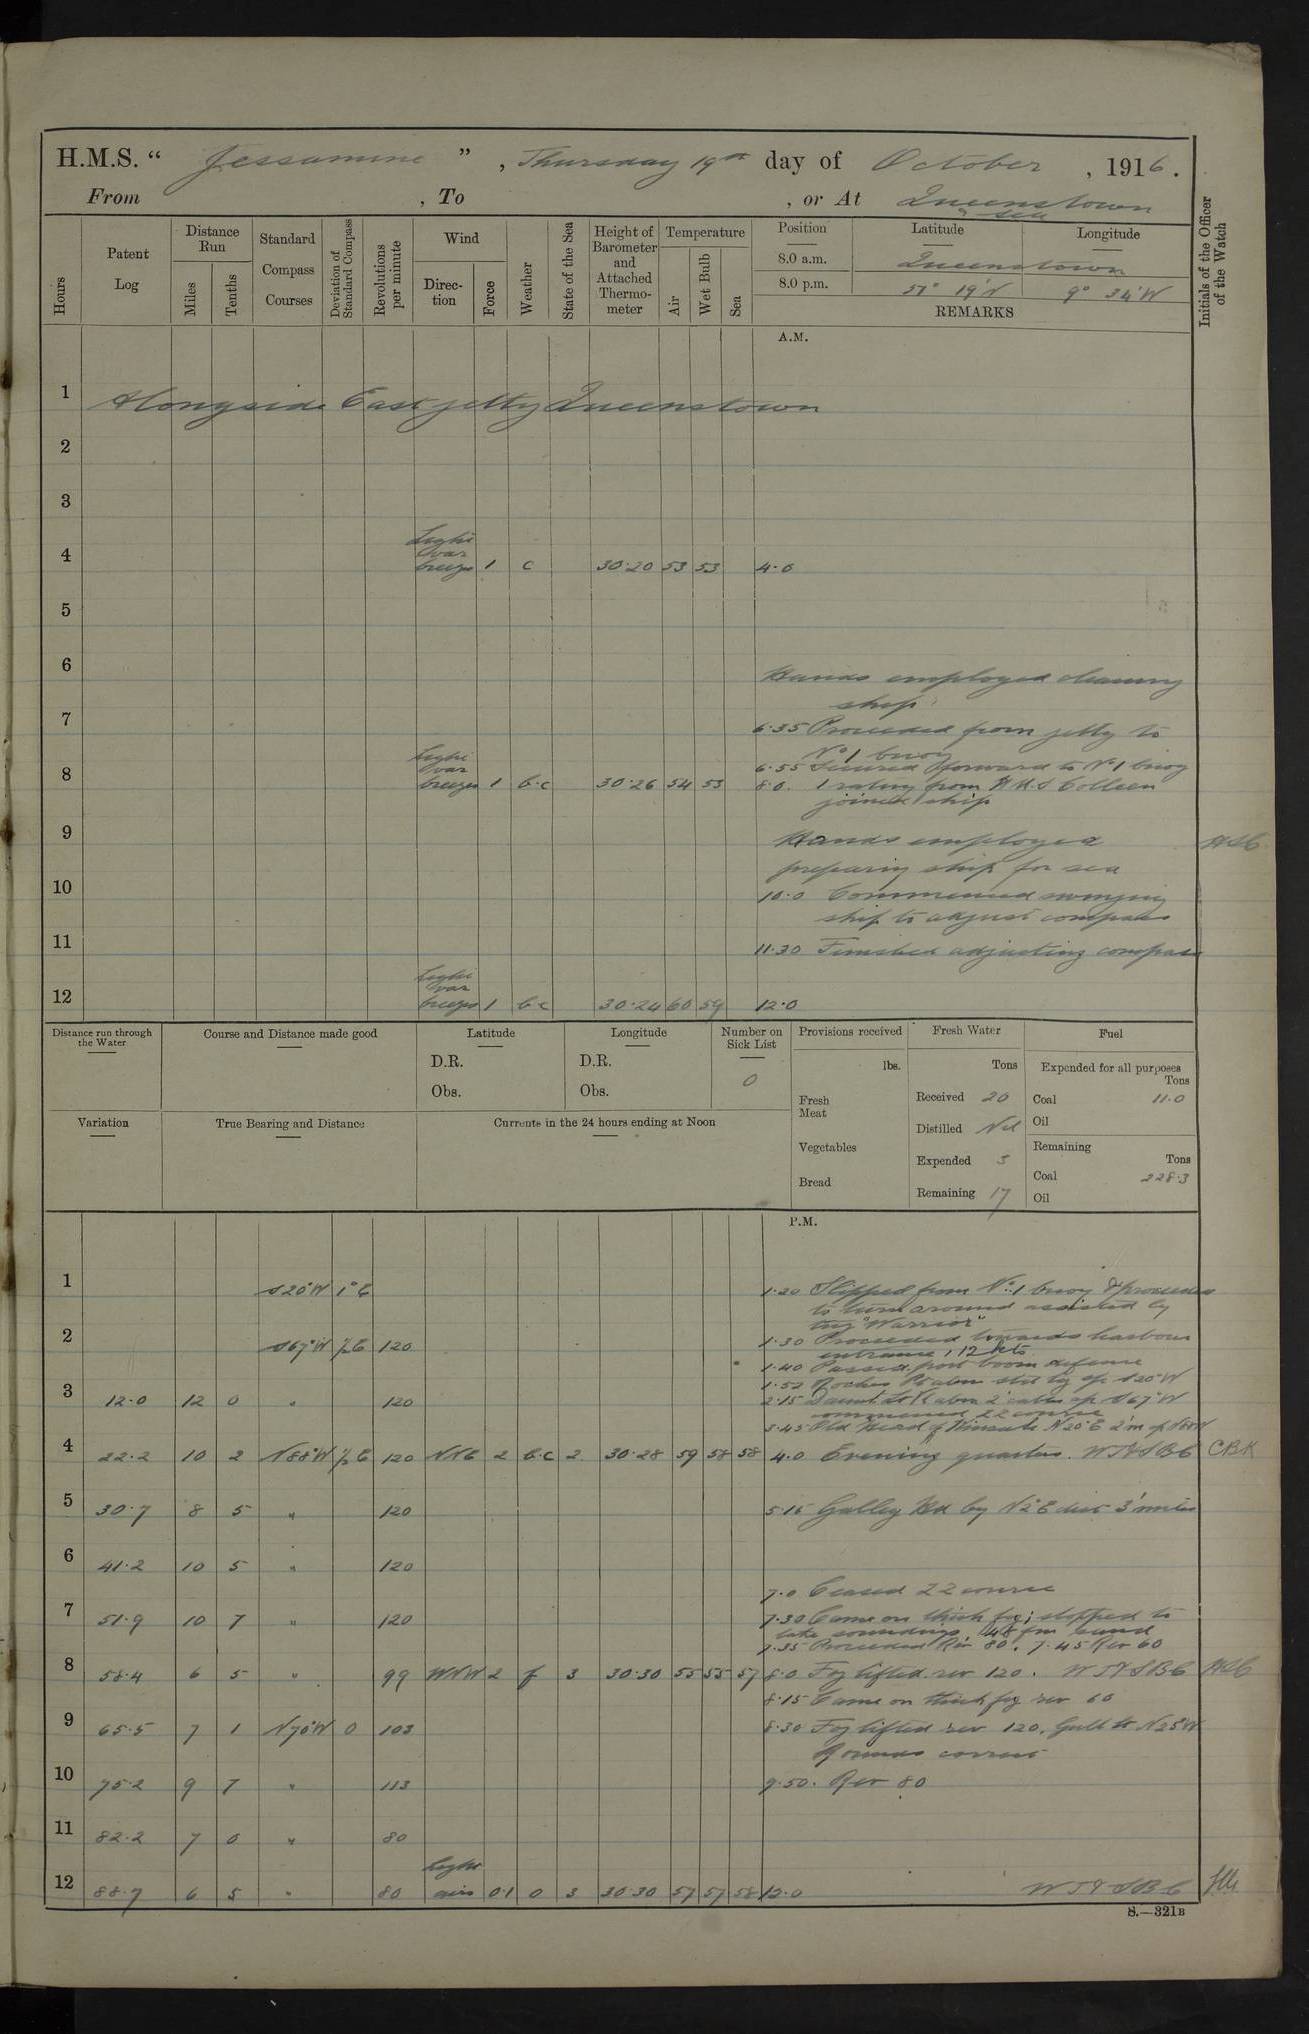 H.M.S. " Jessamine ", Thursday 19th day of October, 1916.
From , To , or At Queenstown
& sea
Hours
Patent Log
Distance Run
Miles
Tenths
Standard Compass Courses
Deviation of Standard Compass
Revolutions per minute
Wind
Direction
Force
Weather
State of the Sea
Height of Barometer and Attached Thermometer
Temperature
Air
Wet Bulb
Sea
Position Latitude Longitude
8.0 a.m. Queenstown
8.0 p.m. 51° 19'N 9° 34'W
REMARKS
Initials of the Officer of the Watch
A.M.
1 Alongside East jetty Queenstown
2
3
Light
var
4 breezes 1 c 30.20 53 53 4.0
5
6
Hands employed cleaning
ship
7
6.35 Proceeded from jetty to
No 1 buoy
Light
var
6.55 Secured forward to No 1 buoy
8 breezes 1 b.c 30.26 54 53 8.0. 1 rating from H.M.S Colleen
joined ship
9 Hands employed
preparing ship for sea
10 10.0 Commenced swinging
ship to adjust compass
11 11.30 Finished adjusting compass
Light
var
12 breezes 1 b.c 30.24 60 59 12.0
Distance run through the Water
Course and Distance made good
Latitude
D.R.
Obs.
Longitude
D.R.
Obs.
Number on Sick List
0
Provisions received
lbs.
Fresh Meat
Vegetables
Bread
Fresh Water
Tons
Received 20
Distilled Nil
Expended 3
Remaining 17
Fuel
Expended for all purposes
Tons
Coal 11.0
Oil
Remaining
Tons
Coal 228.3
Oil
Variation
True Bearing and Distance
Currents in the 24 hours ending at Noon
P.M.
1 S20°W 1°E 1.20 Slipped from No 1 buoy & proceeded
to turn around assisted by
tug "Warrior"
2 S67°W ½E 120 1.30 Proceeded towards harbour
entrance, 12 kts
1.40 Passed port boom defence
1.52 Roches Pt abm std by up S20°W
3 12.0 12 0 " 120 2.15 Daunt Lt V abm 2 cables up S67°W
commenced ZZ course
3.45 Old Head of Kinsale N20°E 2'm up N88W
4 22.2 10 2 N88°W ½E 120 NNE 2 b.c 2 30.28 59 58 58 4.0 Evening quarters. CBK
5 30.7 8 5 " 120 5.15 Galley Hd by N2°E dist 3' miles
6 41.2 10 5 " 120
7.0 Ceased ZZ course
7 51.9 10 7 " 120 7.30 Came on thick fog; stopped to
take soundings, 48 fm sand
7.35 Proceeded Rev 80. 7.45 Rev 60
8 58.4 6 5 " 99 WNW 2 f 3 30.30 55 55 57 8.0 Fog lifted. rev 120.
8.15 Came on thick fog rev 60
9 65.5 7 1 N70°W 0 103 8.30 Fog lifted rev 120. Gull Lt N25°W
Rounds correct
10 75.2 9 7 " 113 9.50. Rev 80
11 82.2 7 0 " 80
Light
12 88.7 6 5 " 80 airs 0.1 0 3 30.30 57 57 58 12.0
S.—321B